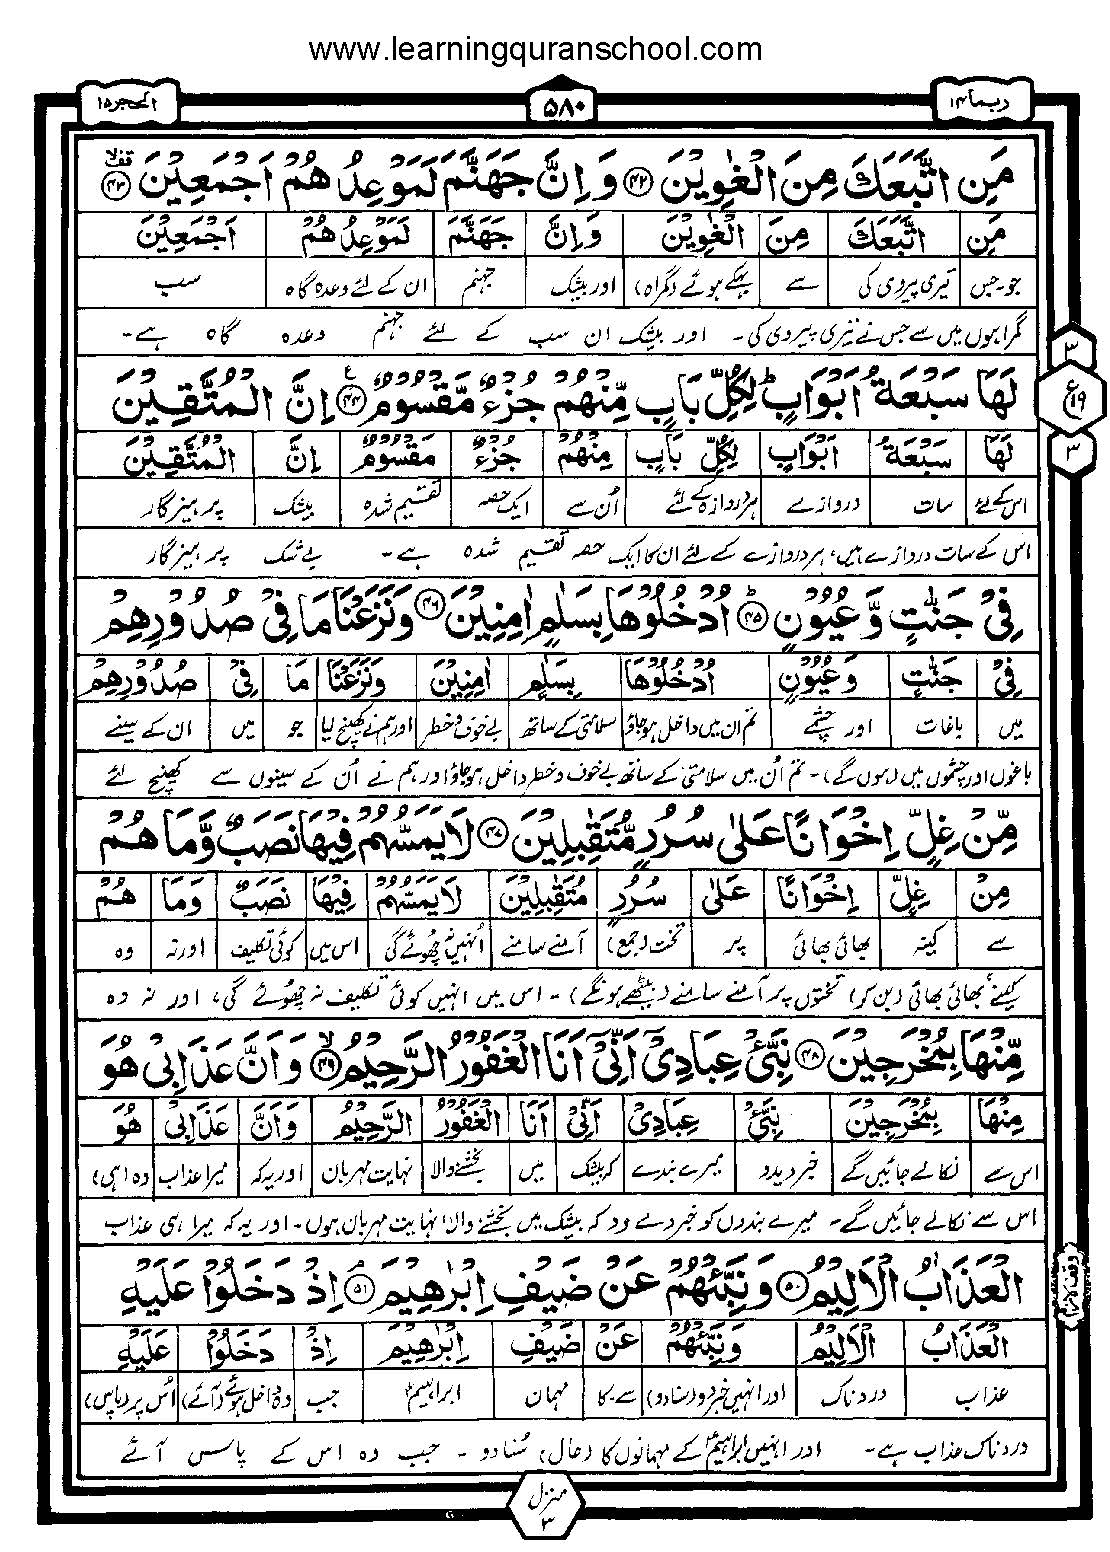 www.learningquranschool.com
ربما ۱۴ ۵۸۰ الحجر ۱۵
مَنِ اتَّبَعَكَ مِنَ الْغٰوِيْنَ ۴۲ وَ اِنَّ جَهَنَّمَ لَمَوْعِدُهُمْ اَجْمَعِيْنَ ۴۳
مَنِ اتَّبَعَكَ مِنَ الْغٰوِيْنَ وَاِنَّ جَهَنَّمَ لَمَوْعِدُهُمْ اَجْمَعِيْنَ
جو۔جس تیری پیروی کی سے بہکے ہوئے (گمراہ) اور بیشک جہنم ان کے لئے وعدہ گاہ سب
گمراہوں میں سے جس نے تیری پیروی کی۔ اور بیشک ان سب کے لئے جہنم وعدہ گاہ ہے۔
لَهَا سَبْعَةُ اَبْوَابٍ ؕ لِكُلِّ بَابٍ مِّنْهُمْ جُزْءٌ مَّقْسُوْمٌ ۴۴ اِنَّ الْمُتَّقِيْنَ
لَهَا سَبْعَةُ اَبْوَابٍ لِكُلِّ بَابٍ مِنْهُمْ جُزْءٌ مَقْسُوْمٌ اِنَّ الْمُتَّقِيْنَ
اس کے لئے سات دروازے ہر دروازہ کے لئے اُن سے ایک حصہ تقسیم شدہ بیشک پرہیزگار
اس کے سات دروازے ہیں، ہر دروازے کے لئے ان کا ایک حصہ تقسیم شدہ ہے۔ بے شک پرہیزگار
فِيْ جَنّٰتٍ وَّ عُيُوْنٍ ۴۵ اُدْخُلُوْهَا بِسَلٰمٍ اٰمِنِيْنَ ۴۶ وَنَزَعْنَا مَا فِيْ صُدُوْرِهِمْ
فِيْ جَنّٰتٍ وَعُيُوْنٍ اُدْخُلُوْهَا بِسَلٰمٍ اٰمِنِيْنَ وَنَزَعْنَا مَا فِيْ صُدُوْرِهِمْ
میں باغات اور چشمے تم ان میں داخل ہو جاؤ سلامتی کے ساتھ بے خوف و خطر اور ہم نے کھینچ لیا جو میں ان کے سینے
باغوں اور چشموں میں (ہوں گے)۔ تم اُن میں سلامتی کے ساتھ بے خوف و خطر داخل ہو جاؤ اور ہم نے اُن کے سینوں سے کھینچ لئے
مِّنْ غِلٍّ اِخْوَانًا عَلٰى سُرُرٍ مُّتَقٰبِلِيْنَ ۴۷ لَا يَمَسُّهُمْ فِيْهَا نَصَبٌ وَّمَا هُمْ
مِنْ غِلٍّ اِخْوَانًا عَلٰى سُرُرٍ مُتَقٰبِلِيْنَ لَا يَمَسُّهُمْ فِيْهَا نَصَبٌ وَمَا هُمْ
سے کینہ بھائی بھائی پر تخت (جمع) آمنے سامنے اُنہیں نہ چھوئے گی اس میں کوئی تکلیف اور نہ وہ
کینے، بھائی بھائی (بن کو) تختوں پر آمنے سامنے (بیٹھے ہونگے)۔ اس میں انہیں کوئی تکلیف نہ چھوئے گی، اور نہ وہ
مِّنْهَا بِمُخْرَجِيْنَ ۴۸ نَبِّئْ عِبَادِيْٓ اَنِّيْٓ اَنَا الْغَفُوْرُ الرَّحِيْمُ ۴۹ وَ اَنَّ عَذَابِيْ هُوَ
مِنْهَا بِمُخْرَجِيْنَ نَبِّئْ عِبَادِيْ اَنِّيْ اَنَا الْغَفُوْرُ الرَّحِيْمُ وَاَنَّ عَذَابِيْ هُوَ
اس سے نکالے جائیں گے خبر دیدو میرے بندے کہ بیشک میں بخشنے والا نہایت مہربان اور یہ کہ میرا عذاب وہ (ہی)
اس سے نکالے جائیں گے۔ میرے بندوں کو خبر دے دو کہ بیشک میں بخشنے والا نہایت مہربان ہوں۔ اور یہ کہ میرا ہی عذاب
الْعَذَابُ الْاَلِيْمُ ۵۰ وَنَبِّئْهُمْ عَنْ ضَيْفِ اِبْرٰهِيْمَ ۵۱ اِذْ دَخَلُوْا عَلَيْهِ
الْعَذَابُ الْاَلِيْمُ وَنَبِّئْهُمْ عَنْ ضَيْفِ اِبْرٰهِيْمَ اِذْ دَخَلُوْا عَلَيْهِ
عذاب دردناک اور انہیں خبر دو (سنا دو) سے۔کا مہمان ابراہیم جب وہ داخل ہوئے (آئے) اُس پر (پاس)
دردناک عذاب ہے۔ اور انہیں ابراہیم کے مہمانوں کا (حال) سُنا دو۔ جب وہ اس کے پاس آئے
۳
ع ۱۹
۳
منزل
۳